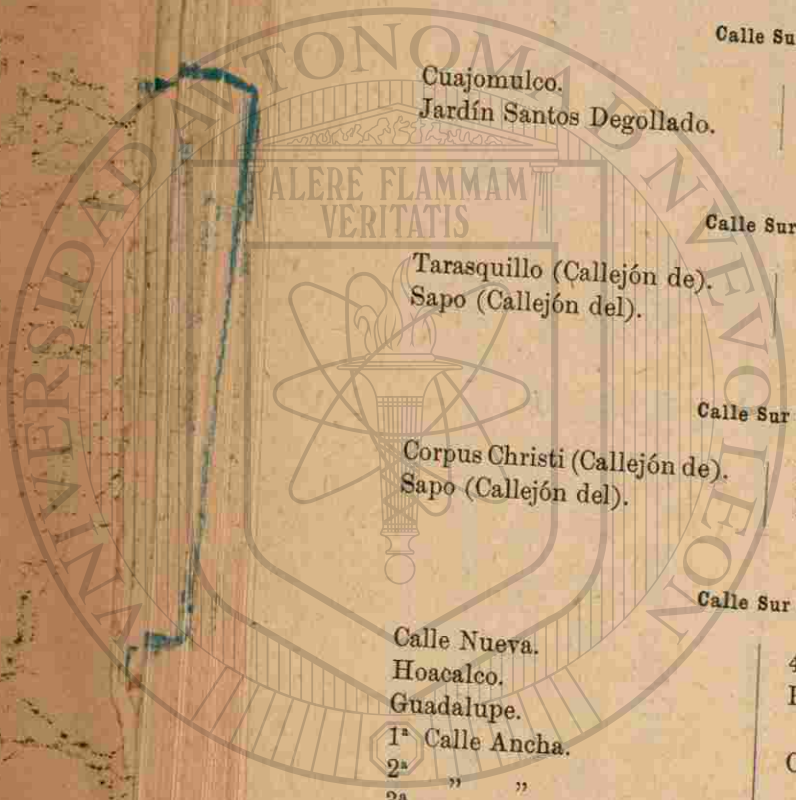 Calle Su
Cuajomulco.
Jardín Santos Degollado.
Calle Sur
Tarasquillo (Callejón de).
Sapo (Callejón del).
Calle Sur
Corpus Christi (Callejón de).
Sapo (Callejón del).
Calle Sur
Calle Nueva.
Hoacalco.
Guadalupe.
1ª Calle Ancha.
2ª „ „
4
C
UNIVERSIDAD AUTONOMA DE NUEVO LEON
ALERE FLAMMAM
VERITATIS